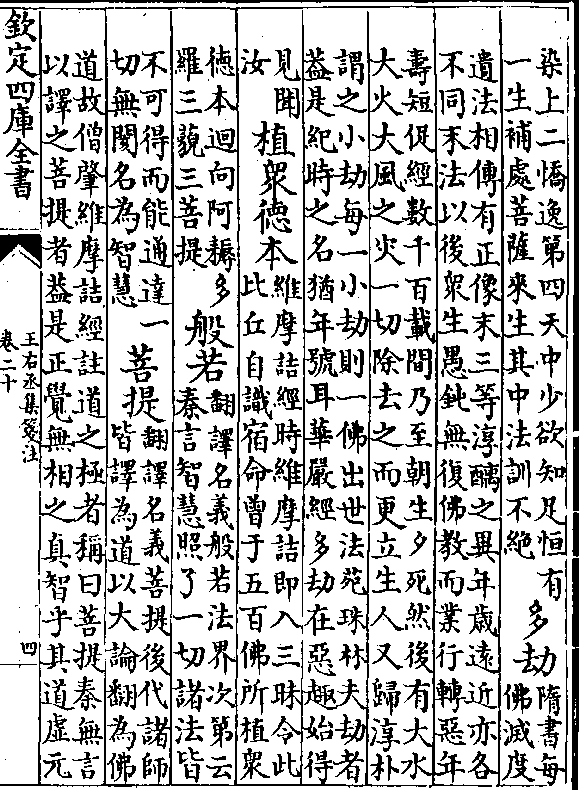 染上二憍逸第四天中少欲知足恒有
一生補處菩薩來生其中法訓不絶
多劫
隋書每
佛滅度
遺法相傳有正像末三等淳醨之異年歲遠近亦各
不同末法以後衆生愚鈍無復佛教而業行轉惡年
壽短促經數千百載間乃至朝生夕死然後有大水
大火大風之災一切除去之而更立生人又歸淳朴
謂之小劫每一小劫則一佛出世法苑珠林夫劫者
葢是紀時之名猶年號耳華嚴經多劫在惡趣始得
見聞
汝
植衆德本
維摩詰經時維摩詰即入三昧令此
比丘自識宿命曾于五百佛所植衆
德本迴向阿耨多
羅三藐三菩提
般若
翻譯名義般若法界次第云
秦言智慧照了一切諸法皆
不可得而能通達一
切無閡名為智慧
菩提
翻譯名義菩提後代諸師
皆譯為道以大論翻為佛
道故僧肇維摩詰經註道之極者稱曰菩提秦無言
以譯之菩提者葢是正覺無相之真智乎其道虛元
欽定四庫全書
王右丞集箋注
卷二十
四